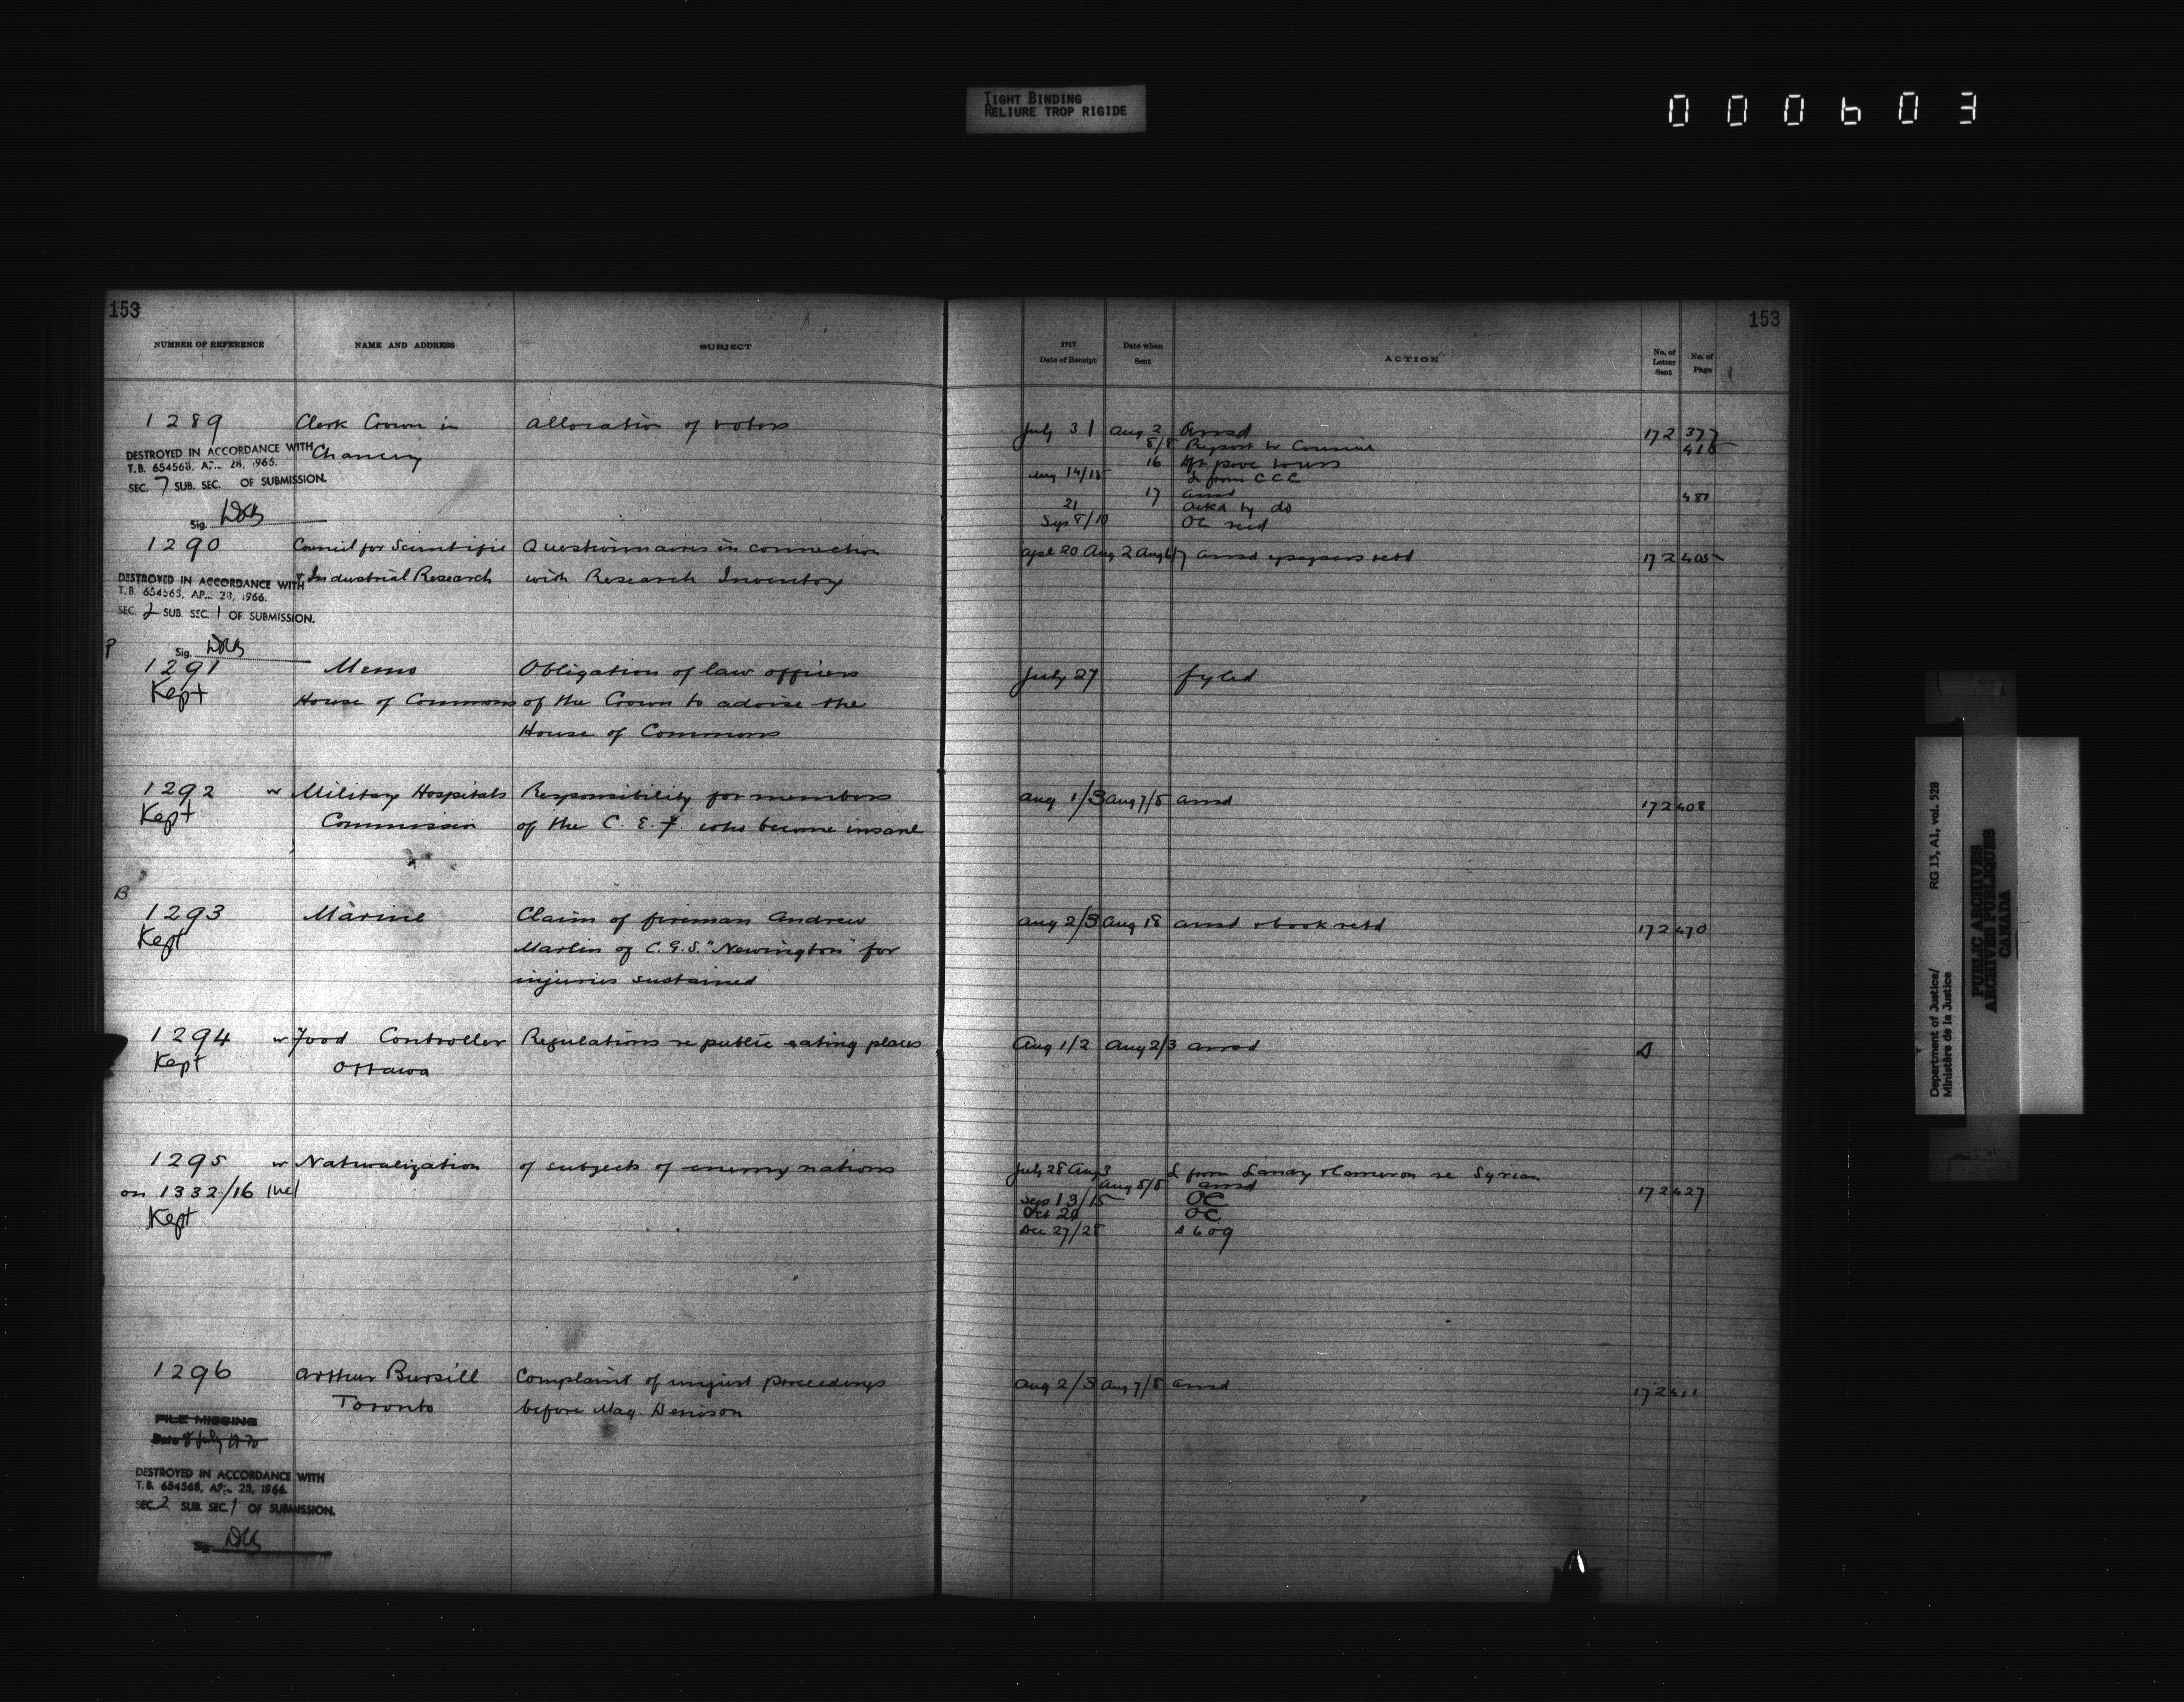 TIGHT BINDING
RELIURE TROP RIGIDE
000603
153
NUMBER OF REFERENCE NAME AND ADDRESS SUBJECT
1917 Date of Receipt Date when Sent ACTION No. of Letter Sent No. of Page
153
1289 Clerk Crown in Allocation of voters July 31 Aug 2 Ansd 172 377
Chancery
8/8 Report to Council
16
Aug 14/15 L from CCC
17 ansd
21 Ackd by do
Sep 8/10 OC recd
DESTROYED IN ACCORDANCE WITH
T.B. 654568, AP... 28, 1966.
SEC. 7 SUB. SEC. OF SUBMISSION.
Sig.
1290 Council for Scientific Questionnaires in connection Aug 2 ansd & papers retd 172 405
& Industrial Research with Research Inventory
DESTROYED IN ACCORDANCE WITH
T.B. 654568, AP... 28, 1966.
SEC. 2 SUB. SEC. 1 OF SUBMISSION.
Sig.
P
1291 Memo Obligation of law officers July 27 fyled
Kept House of Commons of the Crown to advise the
House of Commons
1292 w Military Hospitals Responsibility for members Aug 1/3 Aug 7/8 ansd 172 408
Kept Commission of the C.E.F. who become insane
B
1293 Marine Claim of fireman Andrew Aug 2/3 Aug 18 ansd & book retd 172 470
Kept Marlin of C.G.S. "Newington" for
injuries sustained
1294 w Food Controller Regulations re public eating places Aug 1/2 Aug 2/3 ansd
Kept Ottawa
1295 w Naturalization of subjects of enemy nations July 28 Aug 3 L from Landry & Cameron re Syrian
on 1332/16 Aug 8/8 ansd 172 427
Kept Sep 13/15 OC
Oct 20 OC
Dec 27/28
1296 Arthur Bursill Complaint of unjust proceedings Aug 2/3 Aug 7/8 ansd 172 411
Toronto before Mag. Denison
FILE MISSING
Date 8 July 1970
DESTROYED IN ACCORDANCE WITH
T.B. 654568, AP... 28, 1966.
SEC. 2 SUB. SEC. 1 OF SUBMISSION.
Department of Justice/
Ministère de la Justice
RG 13, A1, vol. 928
PUBLIC ARCHIVES
ARCHIVES PUBLIQUES
CANADA